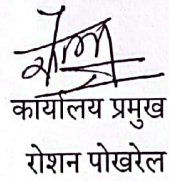 कार्यालय प्रमुख
रोशन पोखरेल